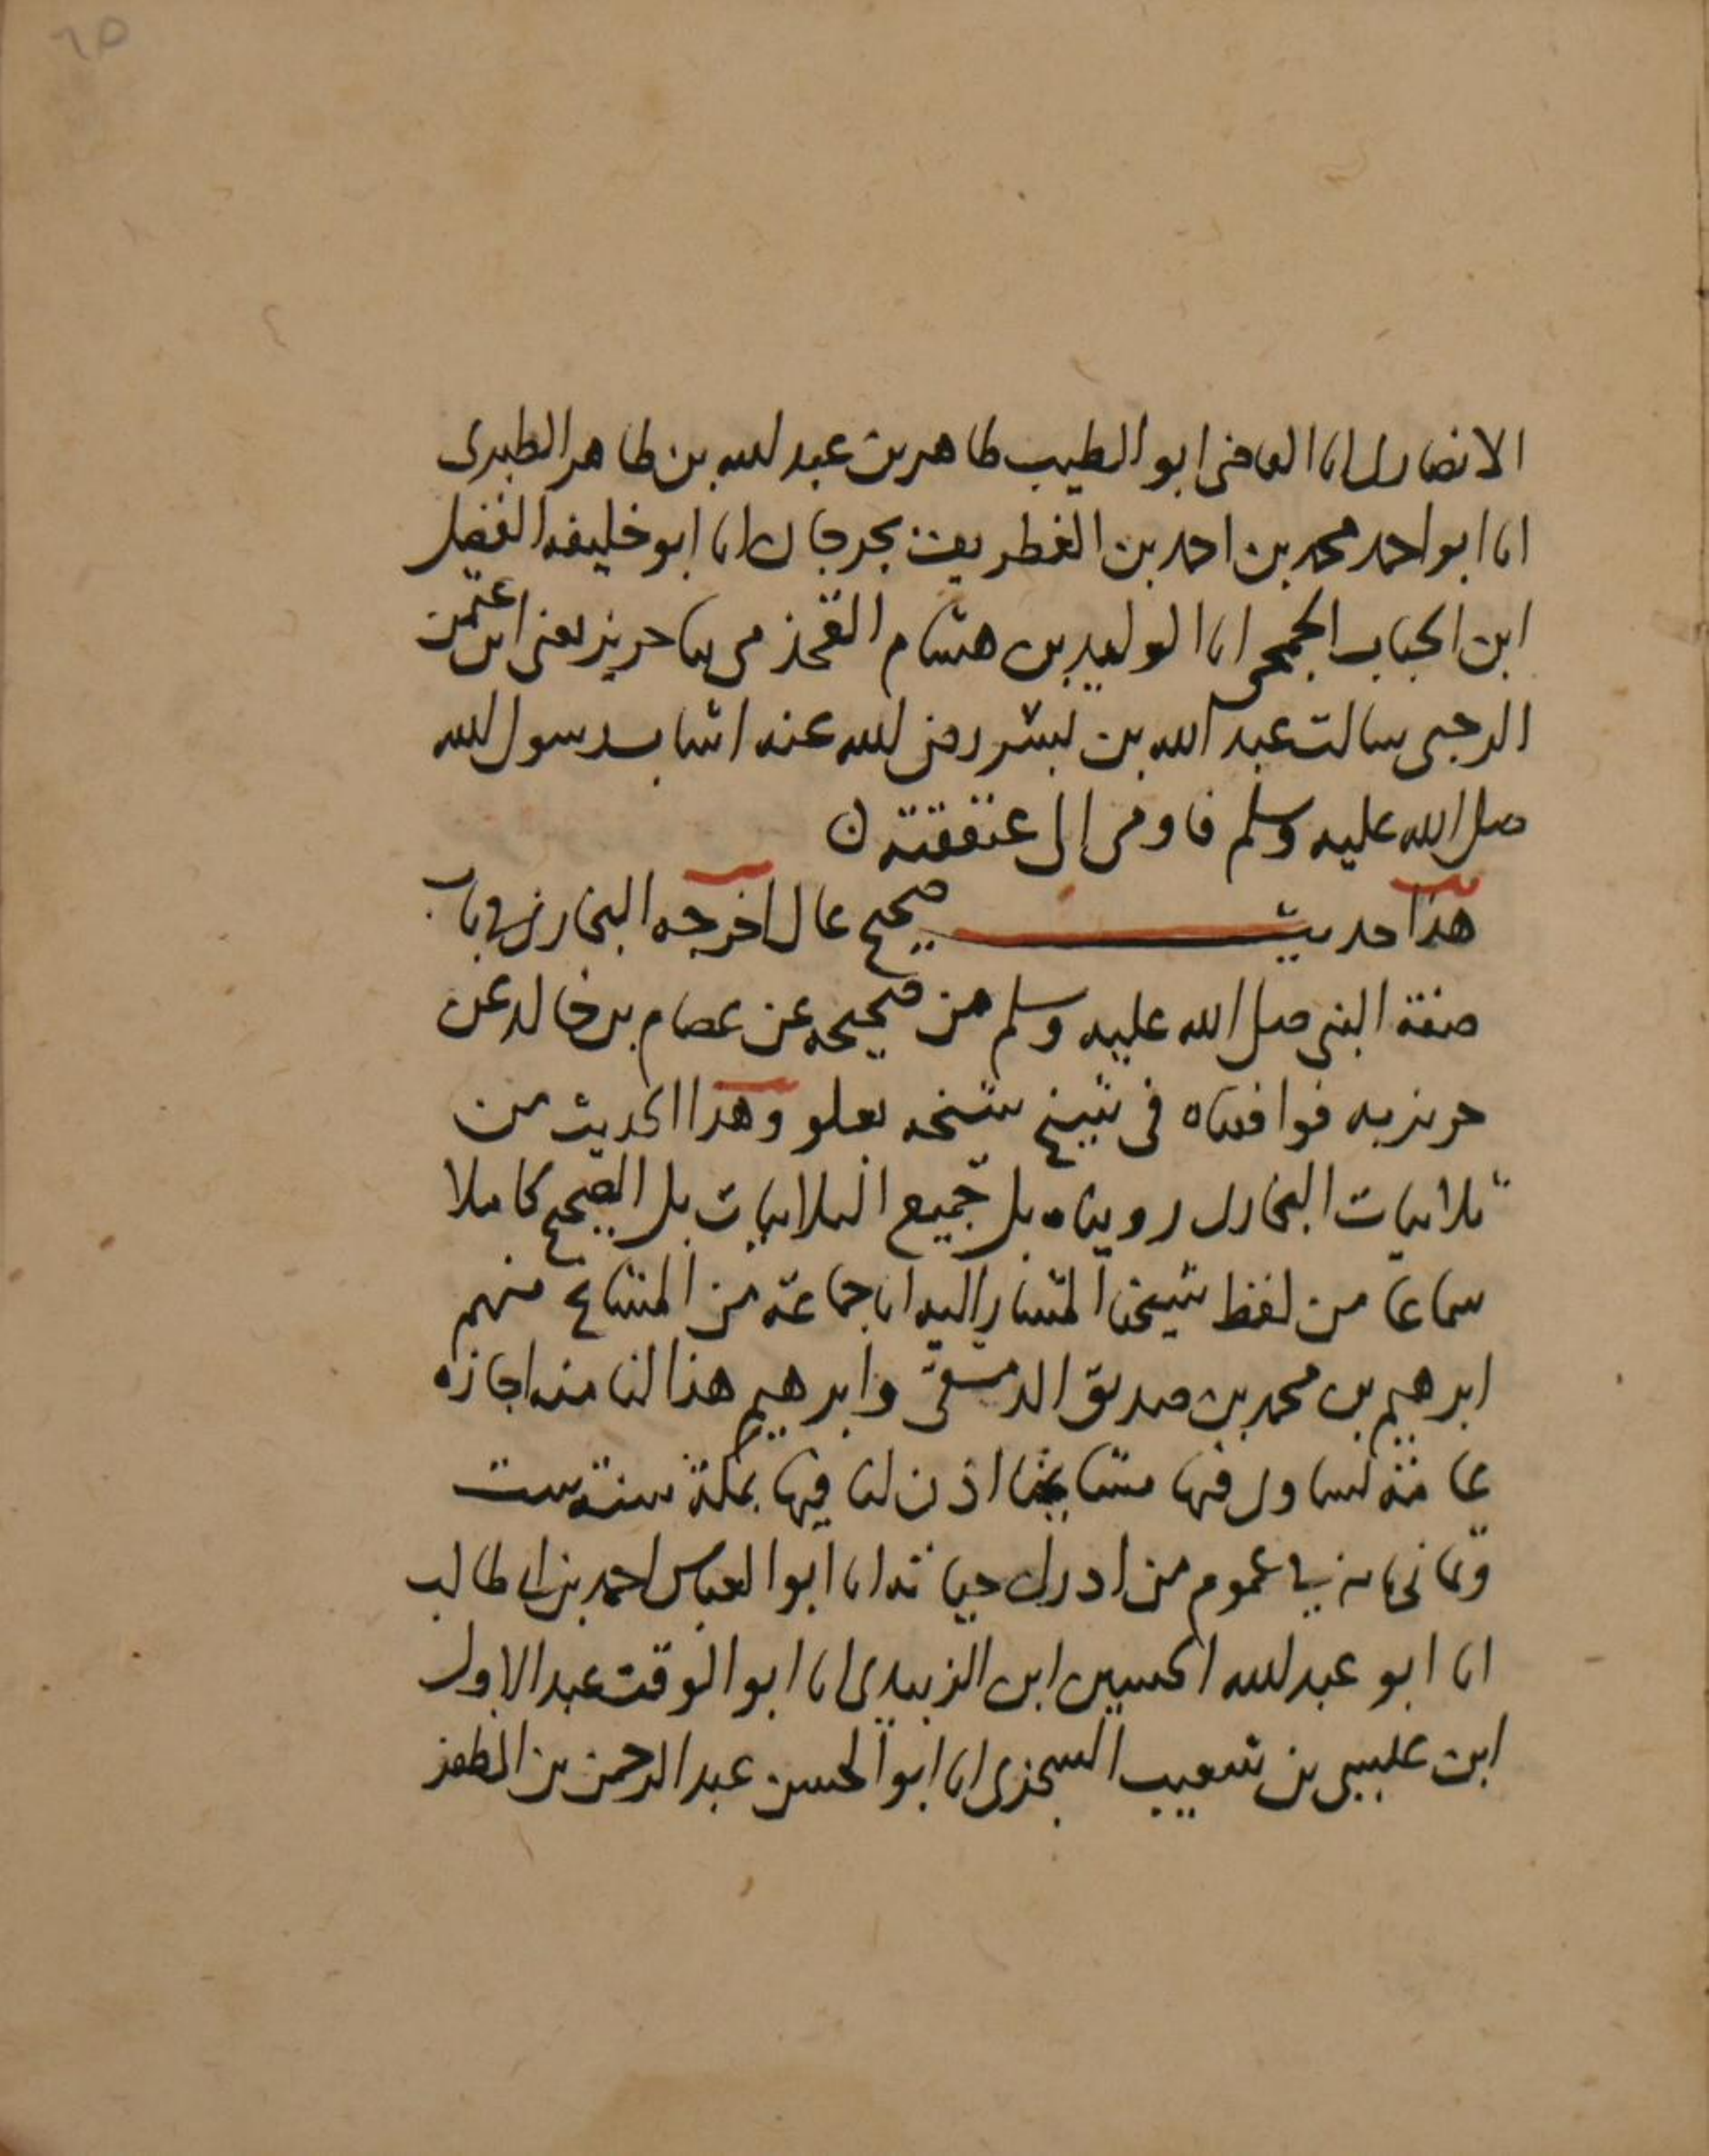 ٦٥
الانصارى انا القاضى ابو الطيب طاهر بن عبد الله بن طاهر الطبرى
انا ابو احمد محمد بن احمد بن الغطريف بجرجان انا ابو خليفه الفضل
ابن الحباب الجمحى انا الوليد بن هشام القحذمى ثنا حريز يعنى ابن عثمن
الرحبى سالت عبد الله بن بشر رضى الله عنه اشاب رسول الله
صلى الله عليه وسلم فاومى الى عنفقته ن
هذا حديث صحيح عال اخرجه البخارى فى باب
صفة النبى صلى الله عليه وسلم من صحيحه عن عصام بن خالد عن
حريز به فوافقناه فى شيخ شيخه بعلو وهذا الحديث من
ثلاثيات البخارى رويناه بل جميع الثلاثيات بل الصحيح كاملا
سماعا من لفظ شيخنا المشار اليه انا جماعة من المشايخ منهم
ابرهيم بن محمد بن صديق الدمشقى وابرهيم هذا لنا منه اجازه
عامة نساوى فيها مشايخنا اذن لنا فيها بمكة سنة ست
وثمانماية فى عموم من ادرك حياته انا ابو العباس احمد بن ابى طالب
انا ابو عبد الله الحسين ابن الزبيدى انا ابو الوقت عبد الاول
ابن عيسى بن شعيب السجزى انا ابو الحسن عبد الرحمن بن المظفر